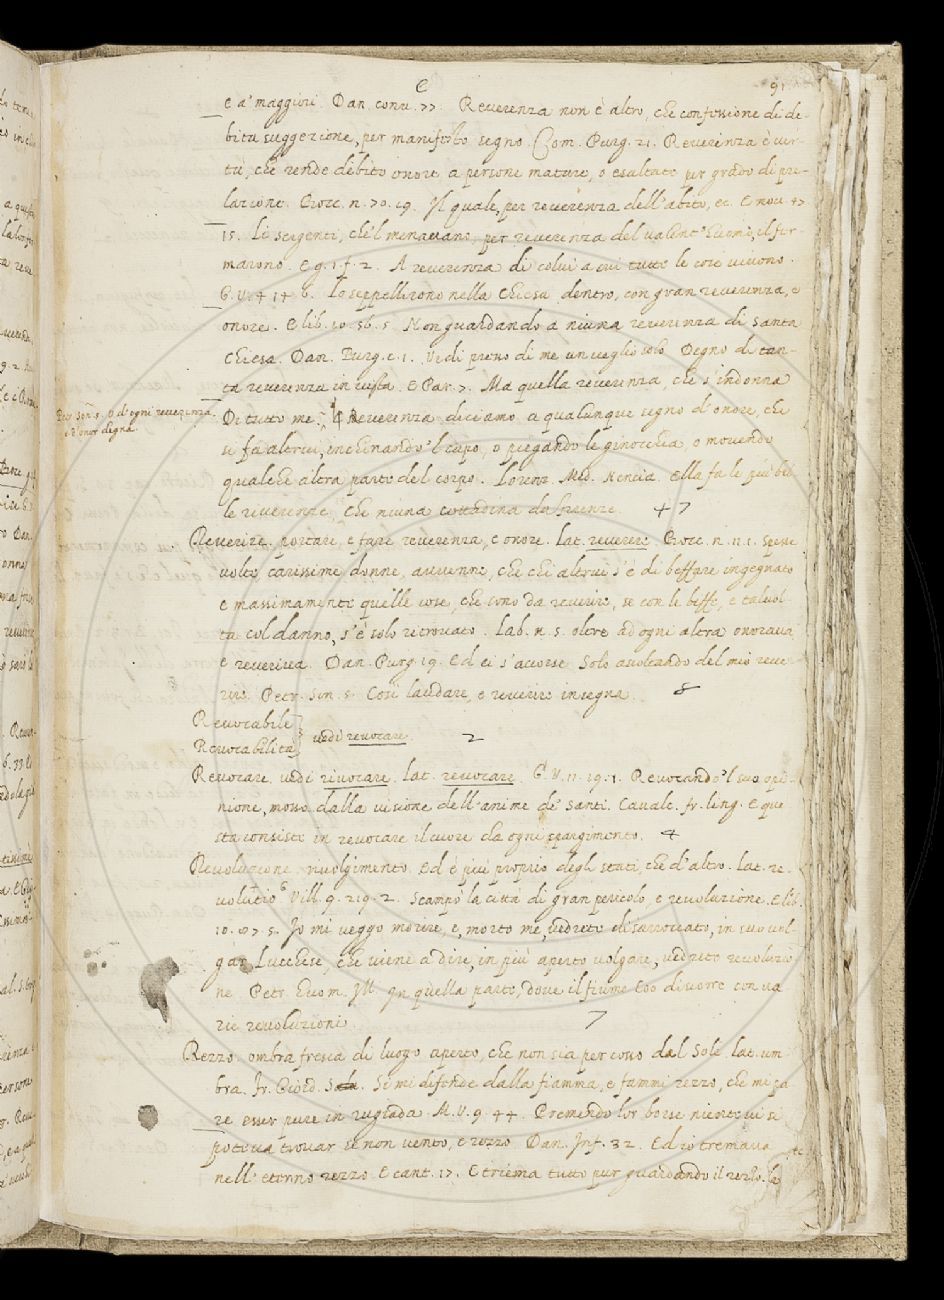 C
91
e a' maggiori. Dan. conv. 77. Reverenza non è altro, che confessione di de-
bita suggezione, per manifesto segno. Com. Purg. 21. Reverenza è vir-
tù, che rende debito onore a persone mature, o esaltate per grado di pre-
lazione. Bocc. n. 70. 19. Il quale, per reverenza dell'abito, ec. E nov. 47
15. Li sergenti, che'l menavano, per reverenza del valent'Uomo, il fer-
marono. E g. 1. f. 2. A reverenza di colui a cui tutte le cose vivono.
G. V. 4 14. 6. Lo seppellirono nella Chiesa dentro, con gran reverenza, e
onore. E lib. 10. 56. 5. Non guardando a niuna reverenza di Santa
Chiesa. Dan. Purg. c. 1. Vidi presso di me un veglio solo Degno di tan-
ta reverenza in vista. E Par. 7. Ma quella reverenza, che s'indonna
Petr. Son. 5. O d'ogni reverenza,
e d'onor degna.
Di tutto me. ¶ Reverenza diciamo a qualunque segno d'onore, che
si fa altrui, inchinando 'l capo, o piegando le ginocchia, o movendo
qualche altra parte del corpo. Lorenz. Med. Nencia. Ella fa le più bel-
le reverenze, Che niuna cittadina da Firenze. 47
Reverire. portare, e fare reverenza, e onore. Lat. revereri. Bocc. n. 11. 1. Spesse
volte, carissime donne, avvenne, che chi altrui s'è di beffare ingegnato
e massimamente quelle cose, che sono da reverire, se con le beffe, e talvol-
ta col danno, s'è solo ritrovato. Lab. n. 5. oltre ad ogni altra onorava,
e reveriva. Dan. Purg. 19. Ed ei s'accorse Solo ascoltando del mio reve-
rire. Petr. Son. 5. Così laudare, e reverire insegna. 8
Revocabile
Revocabilità } vedi revocare. 2
Revocare. vedi rivocare. Lat. revocare. G. V. 11. 19. 1. Revocando 'l suo opi-
nione, mosso dalla visione dell'anime de' Santi. Cavalc. fr. ling. E que
sta consiste in revocare il cuore da ogni spargimento. 4
Revoluzione. rivolgimento. Ed è più proprio degli stati, che d'altro. Lat. re-
volutio. G. Vill. 9. 219. 2. Scampò la città di gran pericolo, e revoluzione. E lib.
10. 87. 5. Io mi veggo morire, e, morto me, vedrete disarrocciato, in suo vol-
gar Lucchese, che viene a dire, in più aperto volgare, vedrete revoluzio
ne. Petr. Uom. Ill. In quella parte, dove il fiume Ebo discorre con va
rie revoluzioni. 7
Rezzo. ombra fresca di luogo aperto, che non sia percosso dal Sole. Lat. um
bra. Fr. Giord. S. Si mi difende dalla fiamma, e fammi rezzo, che mi pa
re esser pure in rugiada. M. V. 9. 44. Premendo lor borse niente vi si
poteva trovar se non vento, e rezzo. Dan. Inf. 32. Ed io tremava
nell'eterno rezzo. E cant. 17. E triema tutto pur guardando il rezzo.